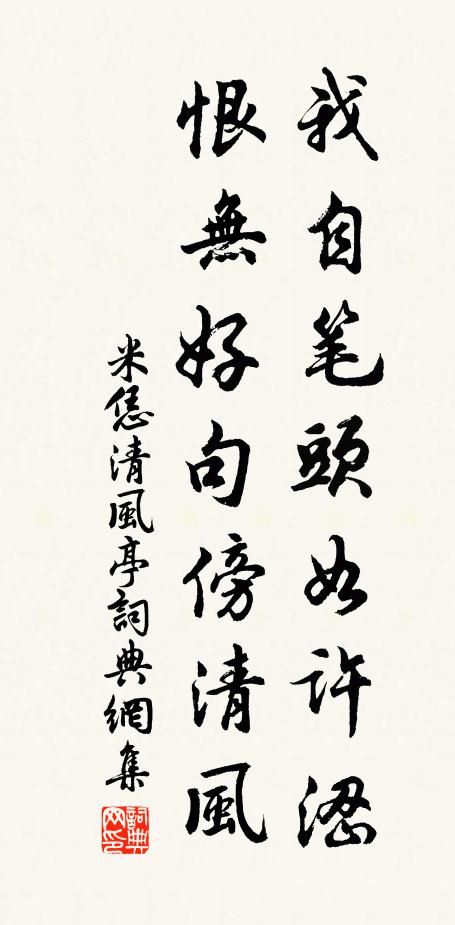 我自笔頭如許涩
恨無好句傍清風
米恁清風亭詞典網集
詞典网印